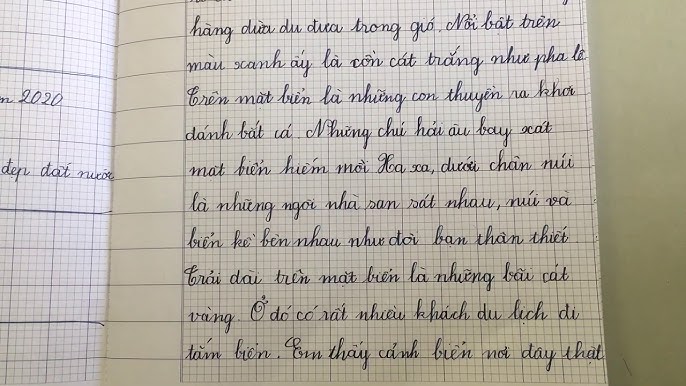 hàng dừa du đưa trong gió. Nổi bật trên
màu xanh ấy là cồn cát trắng như pha lê.
Trên mặt biển là những con thuyền ra khơi
đánh bắt cá. Những chú hải âu bay xát
n 2020
mặt biển kiếm mồi Xa xa, dưới chân núi
đẹp đất nước
là những ngôi nhà san sát nhau, núi và
biển kề bên nhau như đôi bạn thân thiết
Trải dài trên mặt biển là những bãi cát
vàng. Ở đó có rất nhiều khách du lịch đi
tắm biển. Em thấy cảnh biển nơi đây thật